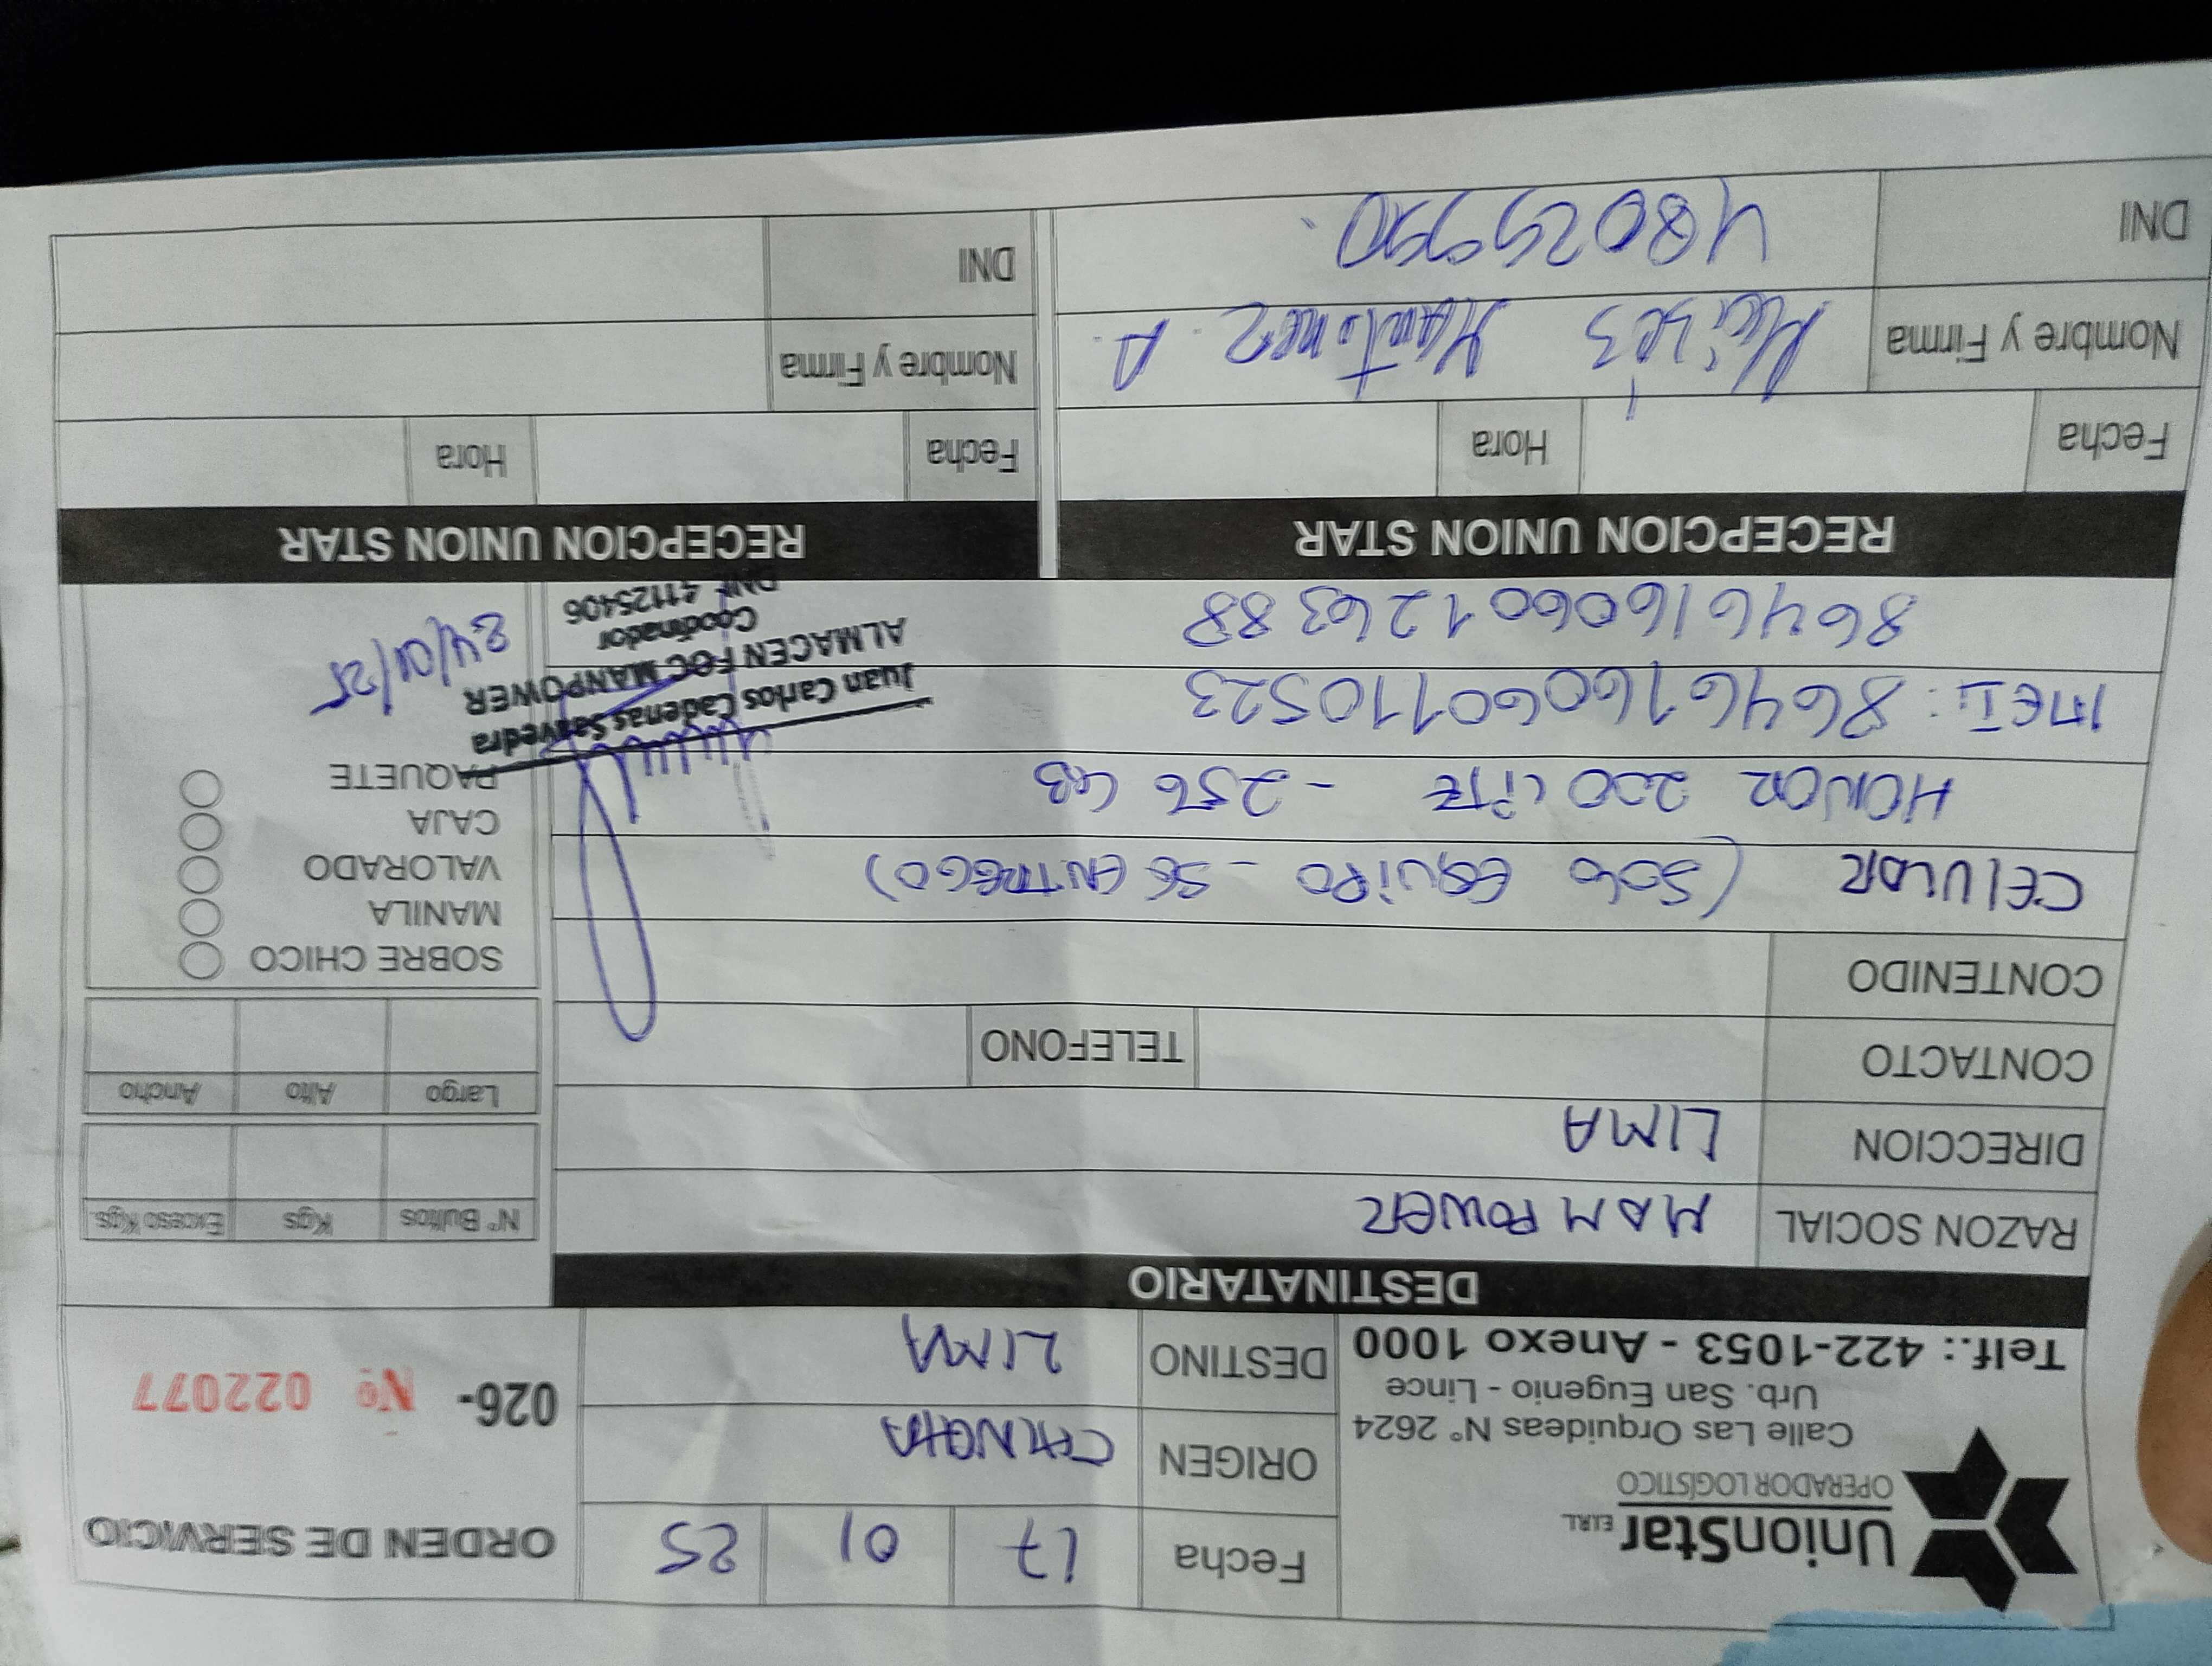 UnionStar E.I.R.L.
OPERADOR LOGÍSTICO
Calle Las Orquideas N° 2624
Urb. San Eugenio - Lince
Telf.: 422-1053 - Anexo 1000
Fecha 17 01 25
ORIGEN CHINCHA
DESTINO LIMA
ORDEN DE SERVICIO
026- Nº 022077
DESTINATARIO
RAZON SOCIAL MAN POWER
DIRECCION LIMA
CONTACTO TELEFONO
CONTENIDO
CELULAR (SOLO EQUIPO - SE ENTREGO)
HONOR 200 LITE - 256 GB
IMEI: 864616060110523
864616060126388
N° Bultos Kgs Exceso Kgs.
Largo Alto Ancho
SOBRE CHICO
MANILA
VALORADO
CAJA
PAQUETE
Juan Carlos Cadenas Saavedra
ALMACEN FOC MANPOWER
Coodinador
DNI 41125406
24/01/25
RECEPCION UNION STAR
Fecha Hora
Nombre y Firma A.
DNI
RECEPCION UNION STAR
Fecha Hora
Nombre y Firma
DNI